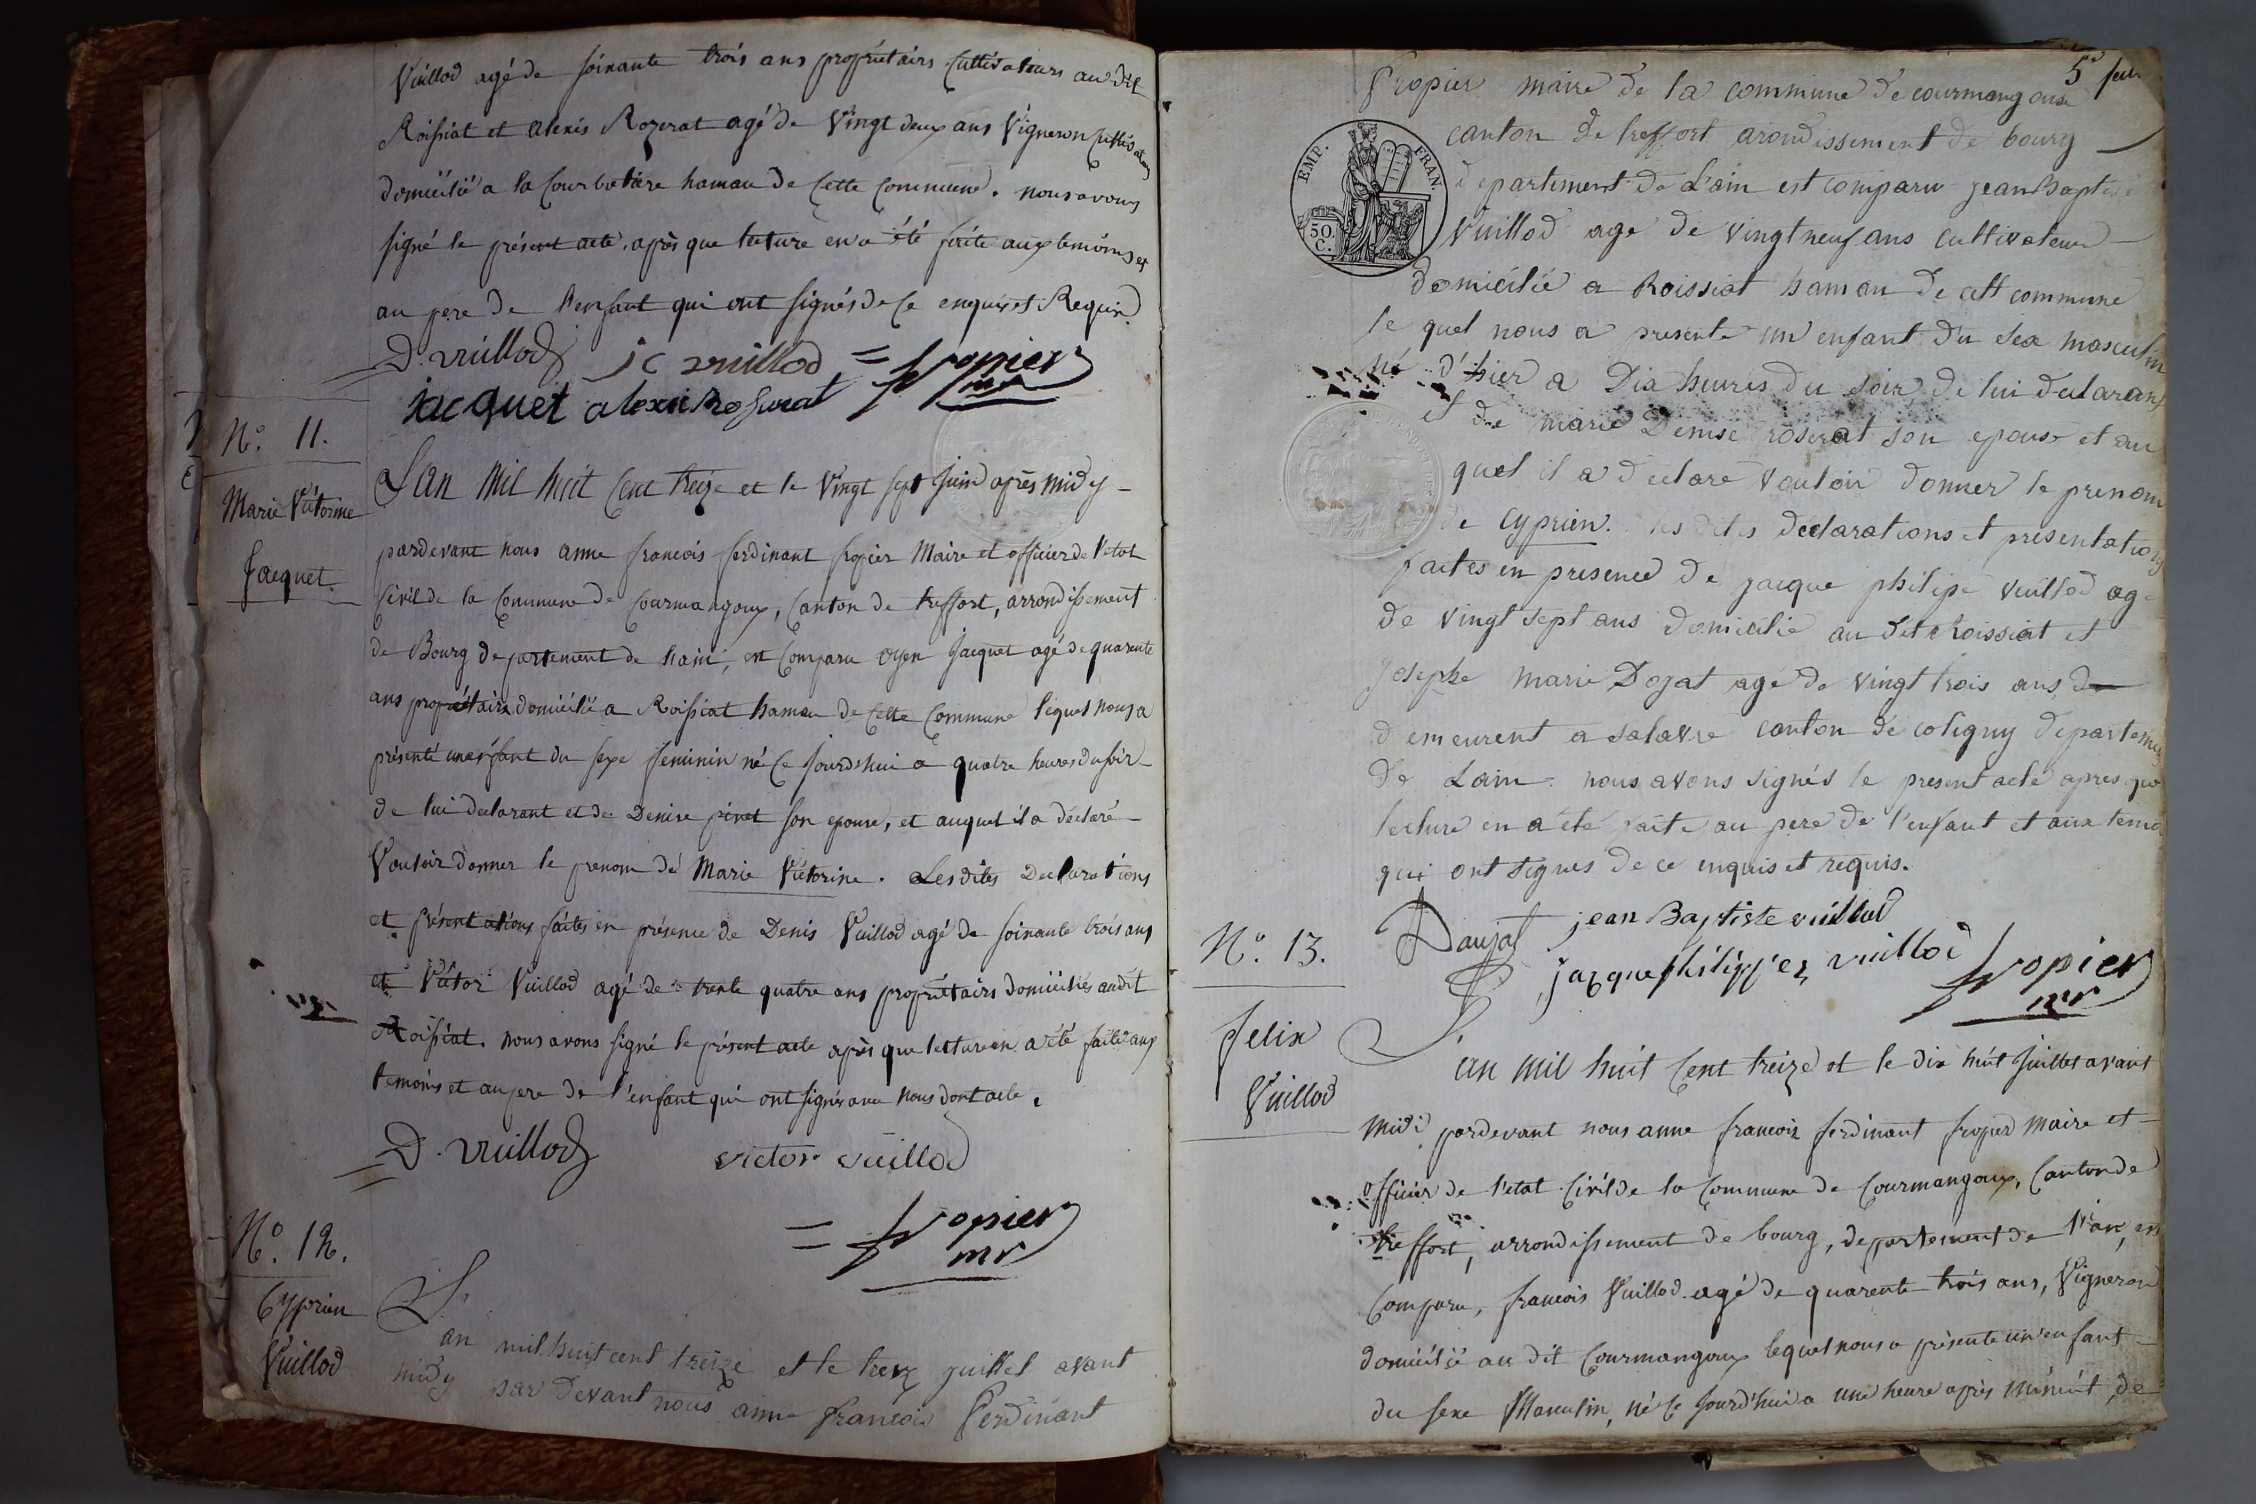 Vuillod agé de soixante trois ans proprietairs Cultivateurs au dit
Roissiat et alexis Rozerat agé de Vingt deux ans Vigneron Cultivateur
domicilié a la Courbatiere hamau de Cette Commune. nous avons
signé le présent acte, après que lecture en a été faite aux temoins et
au pere de l'enfant qui ont signés de ce enquis et Requis.
D. vuillod jc vuillod = fropier mr
jacquet alexis Roserat
N.° 11.
Marie Victorine
Jacquet.
L'an Mil huit Cent treize et le Vingt sept Juin après midy
pardevant nous anne francois ferdinant fropier Maire et officier de l'etat
Civil de la Commune de Courmangoux, Canton de treffort, arrondissement
de Bourg departement de l'ain, est Comparu oyen Jacquet agé de quarente
ans propriétaire domicilié a Roissiat hamau de Cette Commune lequel nous a
présenté un enfant du sexe feminin né Ce Jourd'hui a quatre heures du soir
de lui declarant et de Denise pinet son epouse, et auquel il a déclaré
Vouloir donner le prenom de Marie Victorine. Les dites Declarations
et présentations faites en présence de Denis Vuillod agé de soixante trois ans
et Victor Vuillod agé de trente quatre ans propriétairs domiciliés audit
Roissiat. nous avons signé le présent acte après que lecture en a été faite aux
temoins et au pere de l'enfant qui ont signés avec nous dont acte.
D. vuillod victor vuillod
= fropier
mr
N.° 12.
Cyprien
Vuillod
L'an mil huit cent treize et le treize juillet avant
midy par devant nous anne francois Ferdinant
5e feu
fropier maire de la commune de courmangoux
canton de treffort arondissement de bourg
departement de L'ain est comparu jean Baptiste
Vuillod age de vingt neuf ans cultivateur
EMP. FRAN.
50 C.
domicilié a Roissiat hamau de cette commune
le quel nous a presente un enfant du sex masculin
né d'hier a Dix heures du soir de lui declarant
et de marie Denise roserat son epouse et au
quel il a declare vouloir donner le prenom
de Cyprien. les dites declarations et presentations
faites en presence de jacque philipe vuillod age
de vingt sept ans domicilie au dit Roissiat et
Josephe marie Dojat agé de vingt trois ans de
demeurent a salavre canton de coligny departement
de Lain. nous avons signés le present acte apres que
lecture en a été faite au pere de l'enfant et aux temoins
qui ont signes de ce enquis et requis.
Daujat jean Baptiste vuillod
jacque philippes vuillod
fropier
mr
N.° 13.
felix
Vuillod
L'an mil huit Cent treize et le dix huit Juillet avant
midi pardevant nous anne francois ferdinant fropier Maire et
officier de l'etat Civil de la Commune de Courmangoux, Canton de
treffort, arrondissement de bourg, departement de l'ain, est
Comparu, francois Vuillod agé de quarente trois ans, Vigneron
domicilié au dit Courmangoux lequel nous a présente un enfant
du sexe Masculin, né Ce Jourd'hui a une heure après minuit, de